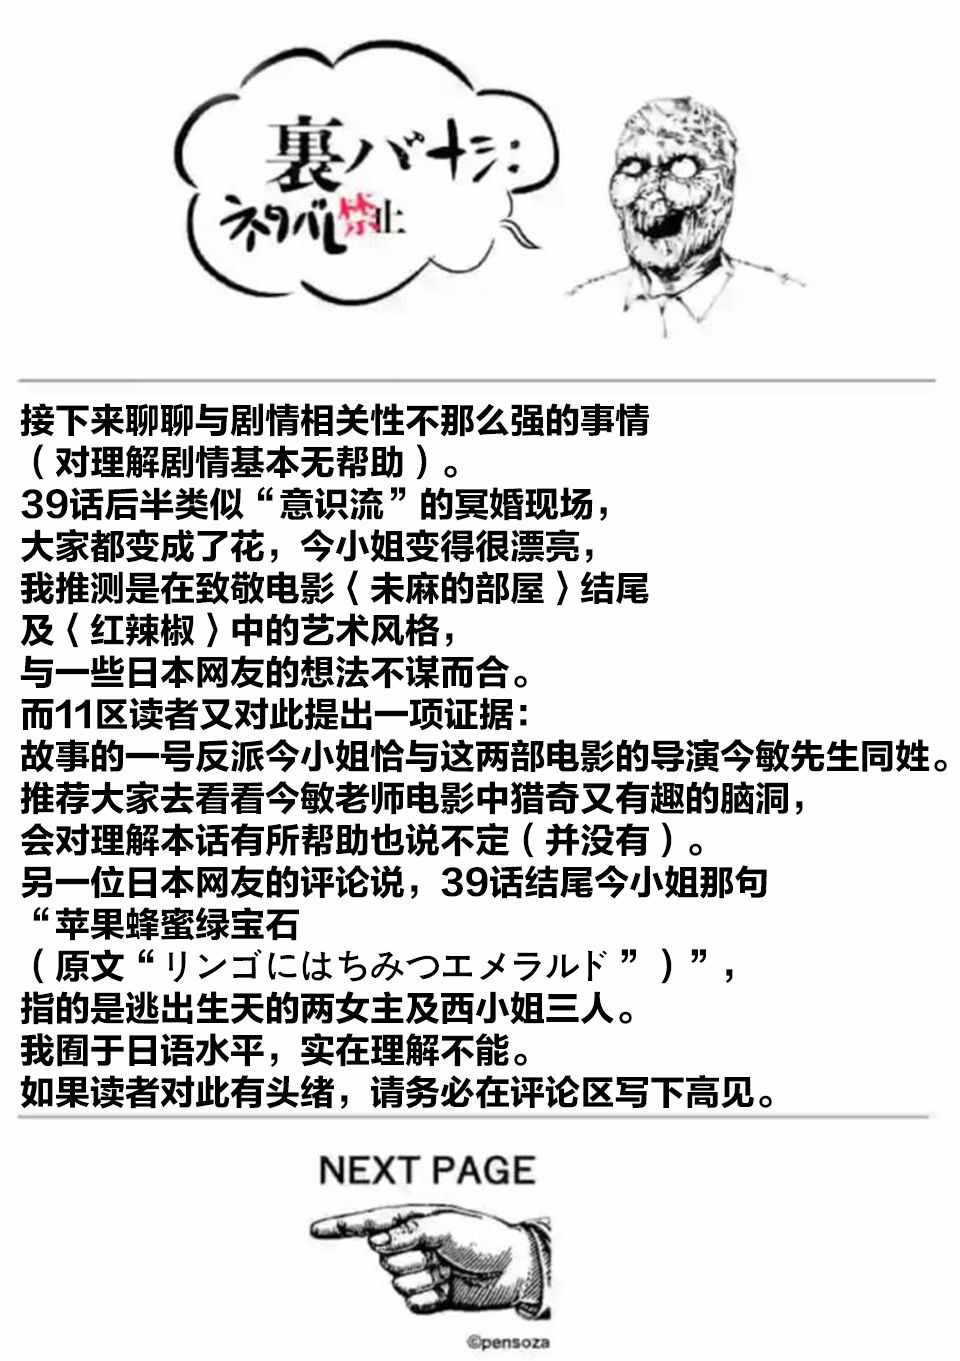 裏バナシ:
ネタバレ禁止
接下来聊聊与剧情相关性不那么强的事情
（对理解剧情基本无帮助）。
39话后半类似“意识流”的冥婚现场，
大家都变成了花，今小姐变得很漂亮，
我推测是在致敬电影〈未麻的部屋〉结尾
及〈红辣椒〉中的艺术风格，
与一些日本网友的想法不谋而合。
而11区读者又对此提出一项证据：
故事的一号反派今小姐恰与这两部电影的导演今敏先生同姓。
推荐大家去看看今敏老师电影中猎奇又有趣的脑洞，
会对理解本话有所帮助也说不定（并没有）。
另一位日本网友的评论说，39话结尾今小姐那句
“苹果蜂蜜绿宝石
（原文“リンゴにはちみつエメラルド”）”，
指的是逃出生天的两女主及西小姐三人。
我囿于日语水平，实在理解不能。
如果读者对此有头绪，请务必在评论区写下高见。
NEXT PAGE
©pensoza